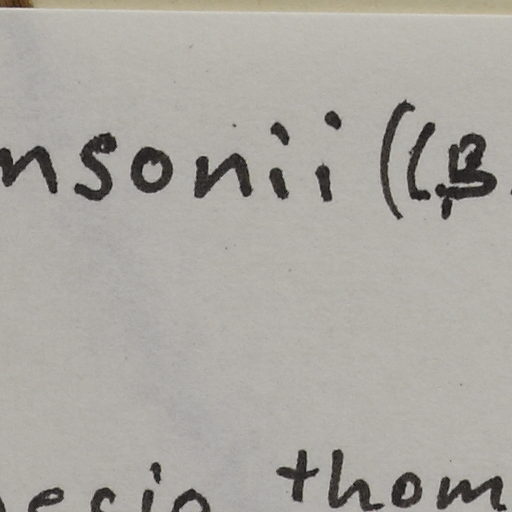 nsonii ((B.
necio thom